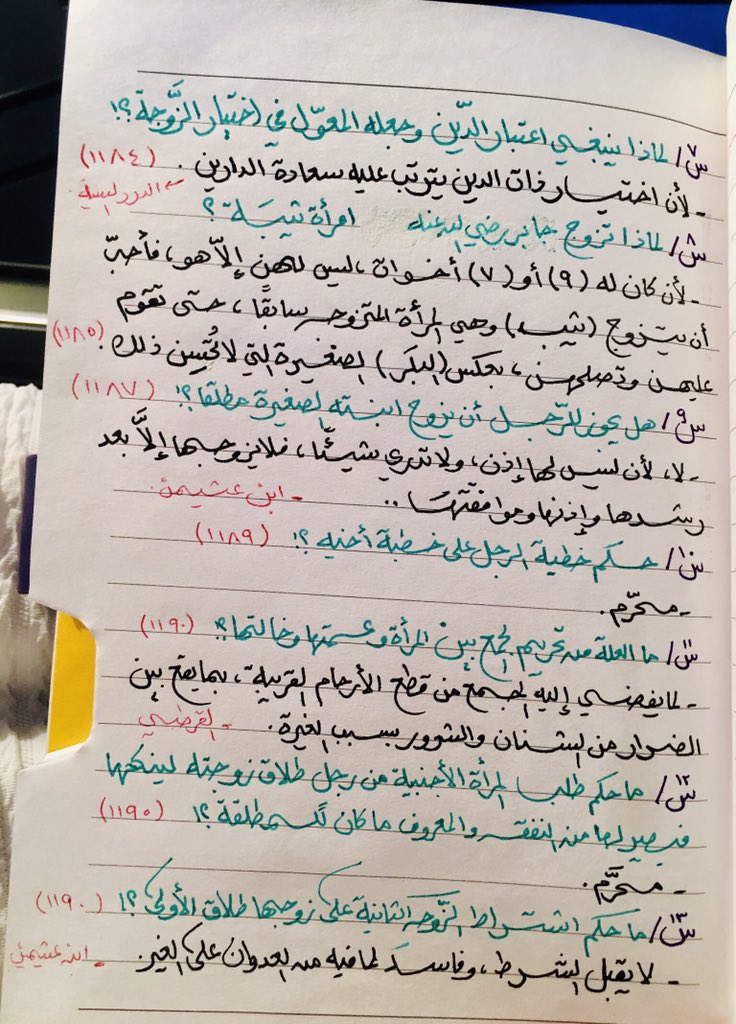 س٧/ لماذا ينبغي اعتبار الدِّين وجعله المعوّل في اختيار الزَّوجة؟!
- لأن اختيار ذات الدين يترتب عليه سعادة الدارين. (١١٨٤)
← الدرر السنية
س٨/ لماذا تزوج جابر رضي الله عنه امرأة ثيبة؟
- لأن كان له (٩) أو (٧) أخوات، ليس لهن إلاّ هو، فأحبّ
أن يتزوج (ثيب) وهي المرأة المتزوجه سابقًا، حتى تقوم
عليهن وتصلحهن، بعكس (البكر) الصغيرة التي لا تُحسِن ذلك. (١١٨٥)
س٩/ هل يجوز للرَّجل أن يزوج ابنته الصغيرة مطلقا؟! (١١٨٧)
- لا، لأن ليس لها إذن، ولا تدري شيئًا، فلا يزوجها إلاَّ بعد
رشدها وإذنها وموافقتها.. - ابن عثيمين.
س١٠/ حكم خطبة الرجل على خطبة أخيه؟! (١١٨٩)
- محرّم.
س١١/ ما العلة من تحريم الجمع بين المرأة وعمتها وخالتها؟! (١١٩٠)
- لما يفضي إليه الجمع من قطع الأرحام القريبة، بما يقع بين
الضرار من الشنان والشرور بسبب الغيرة. - القرطبي
س١٢/ ما حكم طلب المرأة الأجنبية من رجل طلاق زوجته لينكحها
فيصير لها من النفقه والمعروف ما كان للمطلقة؟! (١١٩٠)
- محرَّم.
س١٣/ ما حكم اشتراط الزَّوجه الثانية على زوجها طلاق الأولى؟! (١١٩٠)
- لا يقبل الشرط، وفاسد لما فيه من العدوان على الغير. - ابن عثيمين